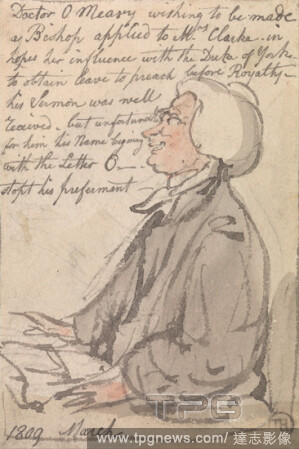 Doctor O Meary wishing to be made
a Bishop applied to Mrs Clarke - in
hopes her influence with the Duke of York -
to obtain leave to preach before Royalty -
his Sermon was well
received - but unfortunately
for him his Name begining
with the Letter O -
stopt his preferment -
1809 March
TPG
www.tpgnews.com / 達志影像